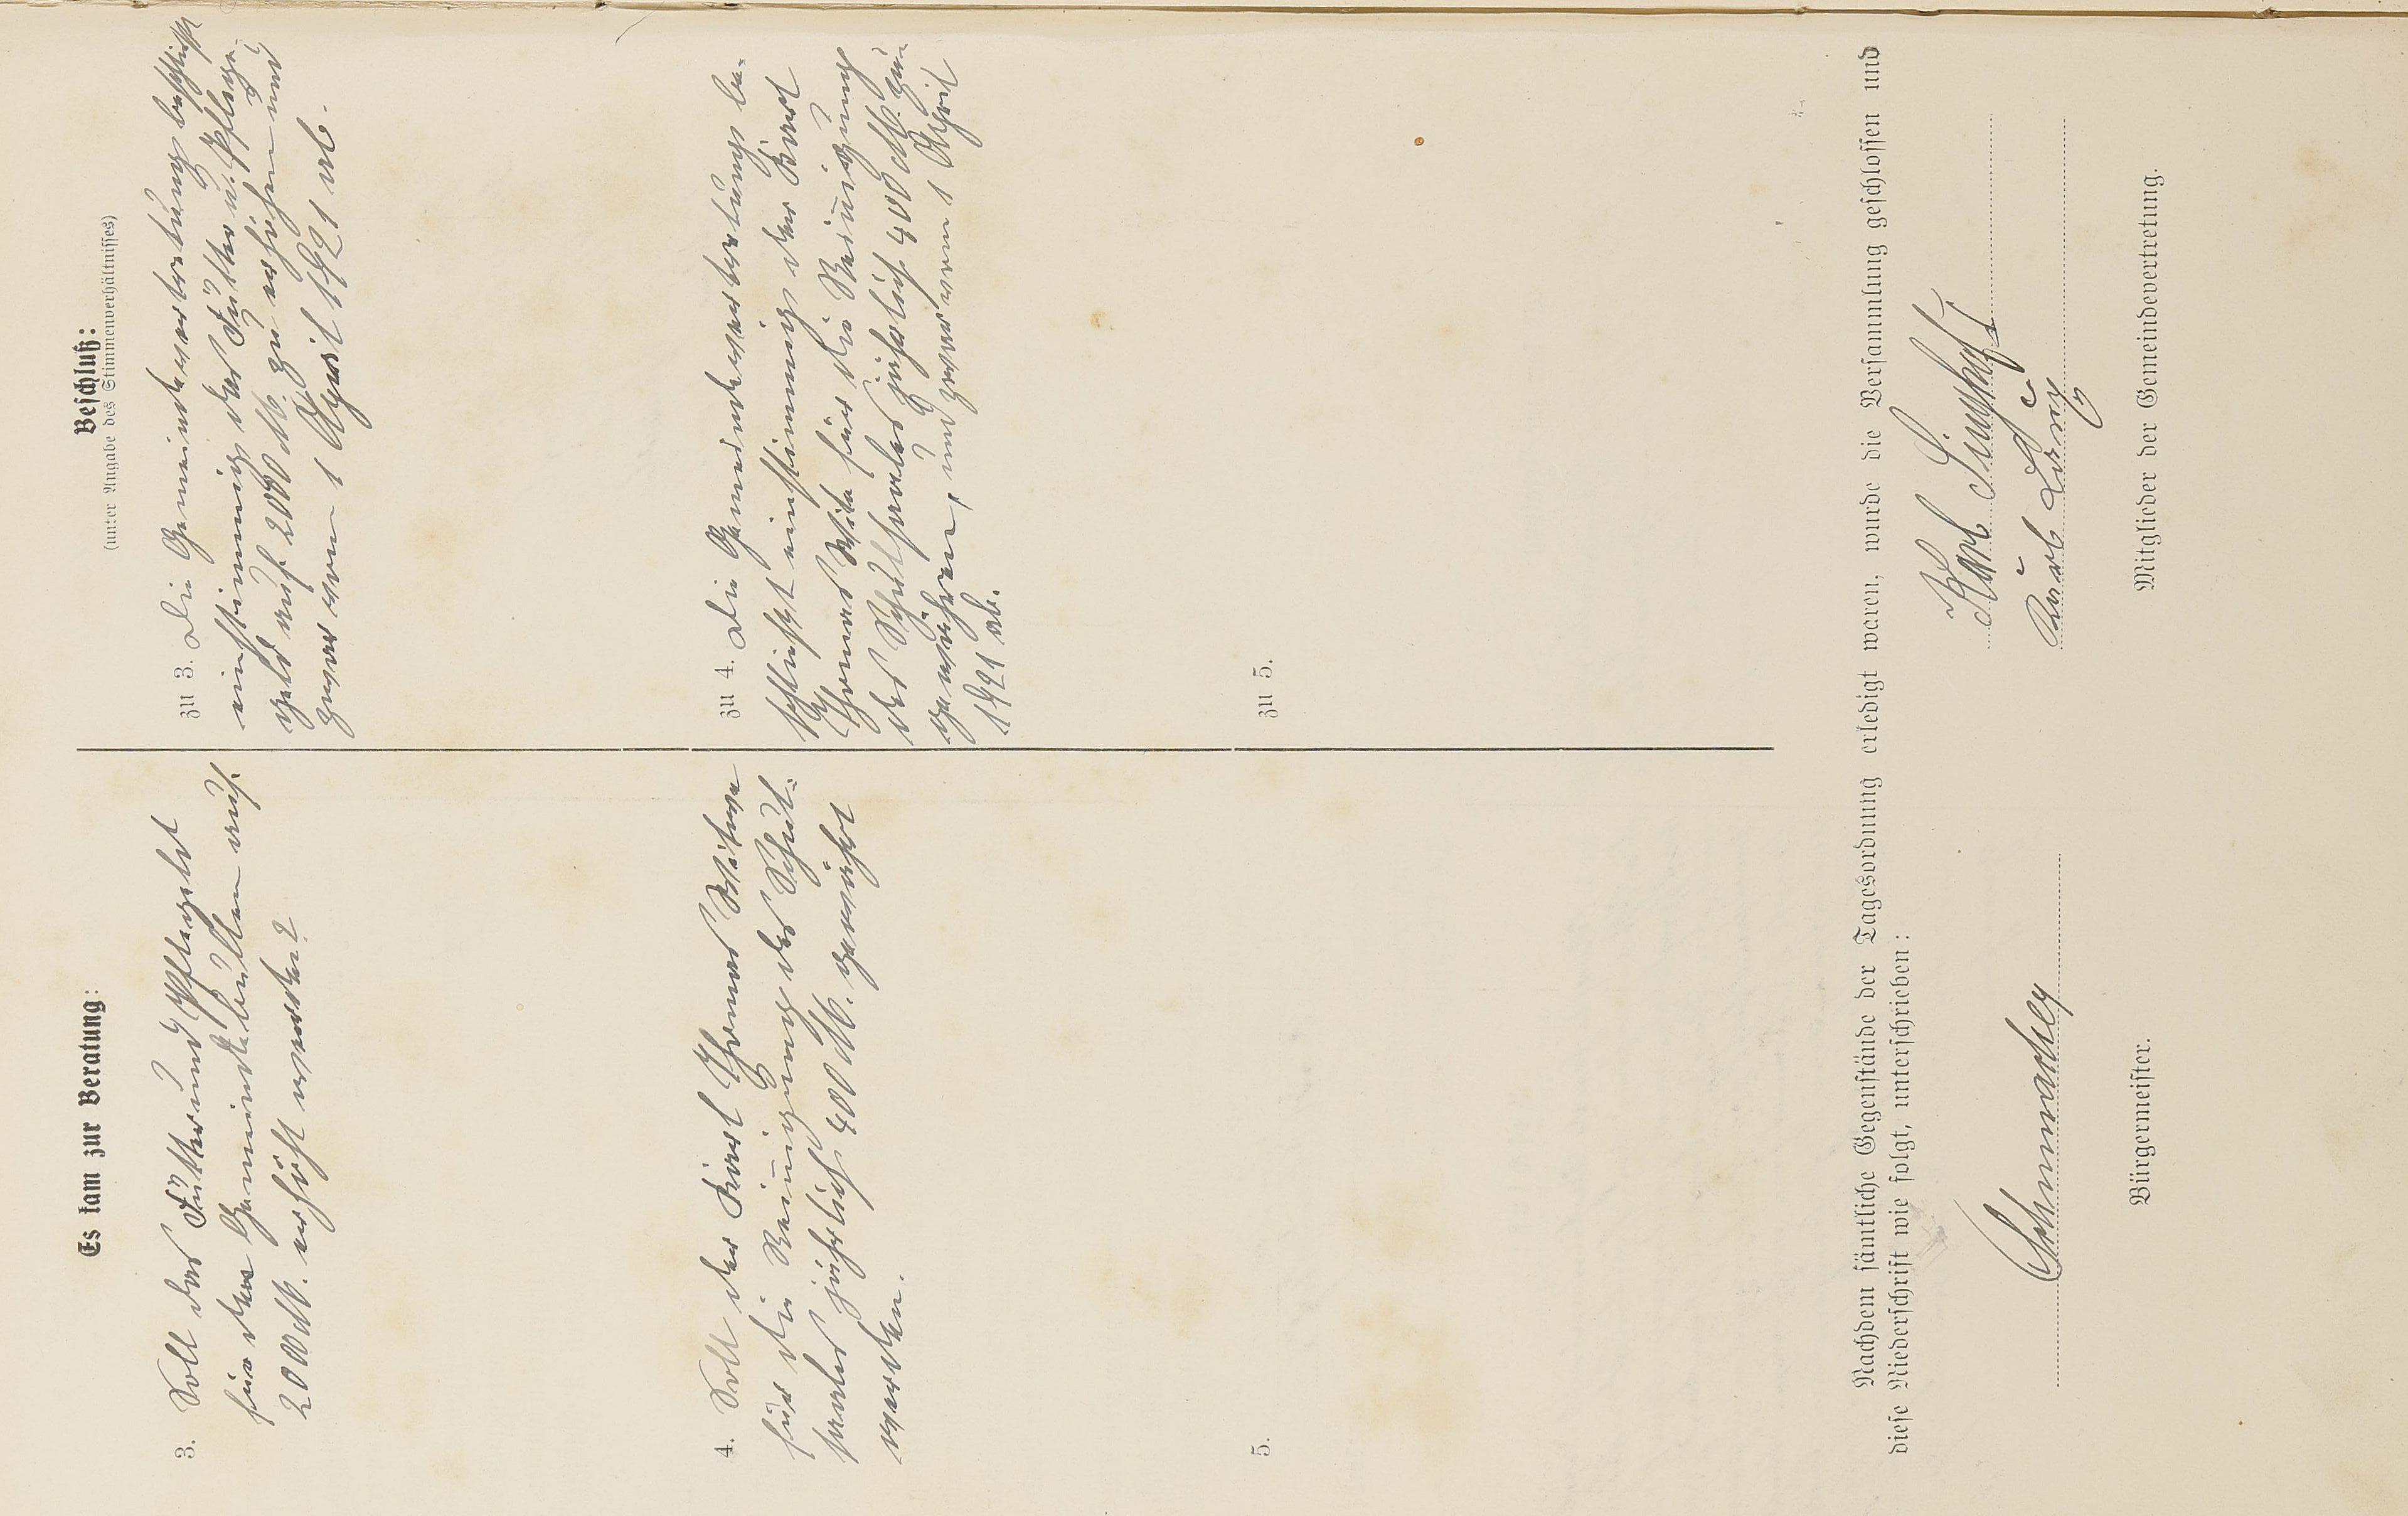 Es kam zur Beratung:
3. Soll das Futter und Pflegeld
für den Gemeindebullen auf
2000 M. erhöht werden?
4. Soll der Karl Thomas Witwe
für die Reinigung des Schul-
saales jährlich 400 M. gewährt
werden.
5.
Beschluß:
(unter Angabe des Stimmenverhältnisses)
zu 3. Die Gemeindevertretung beschließt
einstimmig das Futter u. Pflege-
geld auf 2000 M. zu erhöhen und
zwar vom 1 April 1921 ab.
zu 4. Die Gemeindevertretung be-
schließt einstimmig der Karl
Thomas Witwe für die Reinigung
des Schulsaales jährlich 400 M. zu
gewähren, und zwar vom 1 April
1921 ab.
zu 5.
Nachdem sämtliche Gegenstände der Tagesordnung erledigt waren, wurde die Versammlung geschlossen und
diese Niederschrift wie folgt, unterschrieben:
Karl
Karl
Bürgermeister.
Mitglieder der Gemeindevertretung.